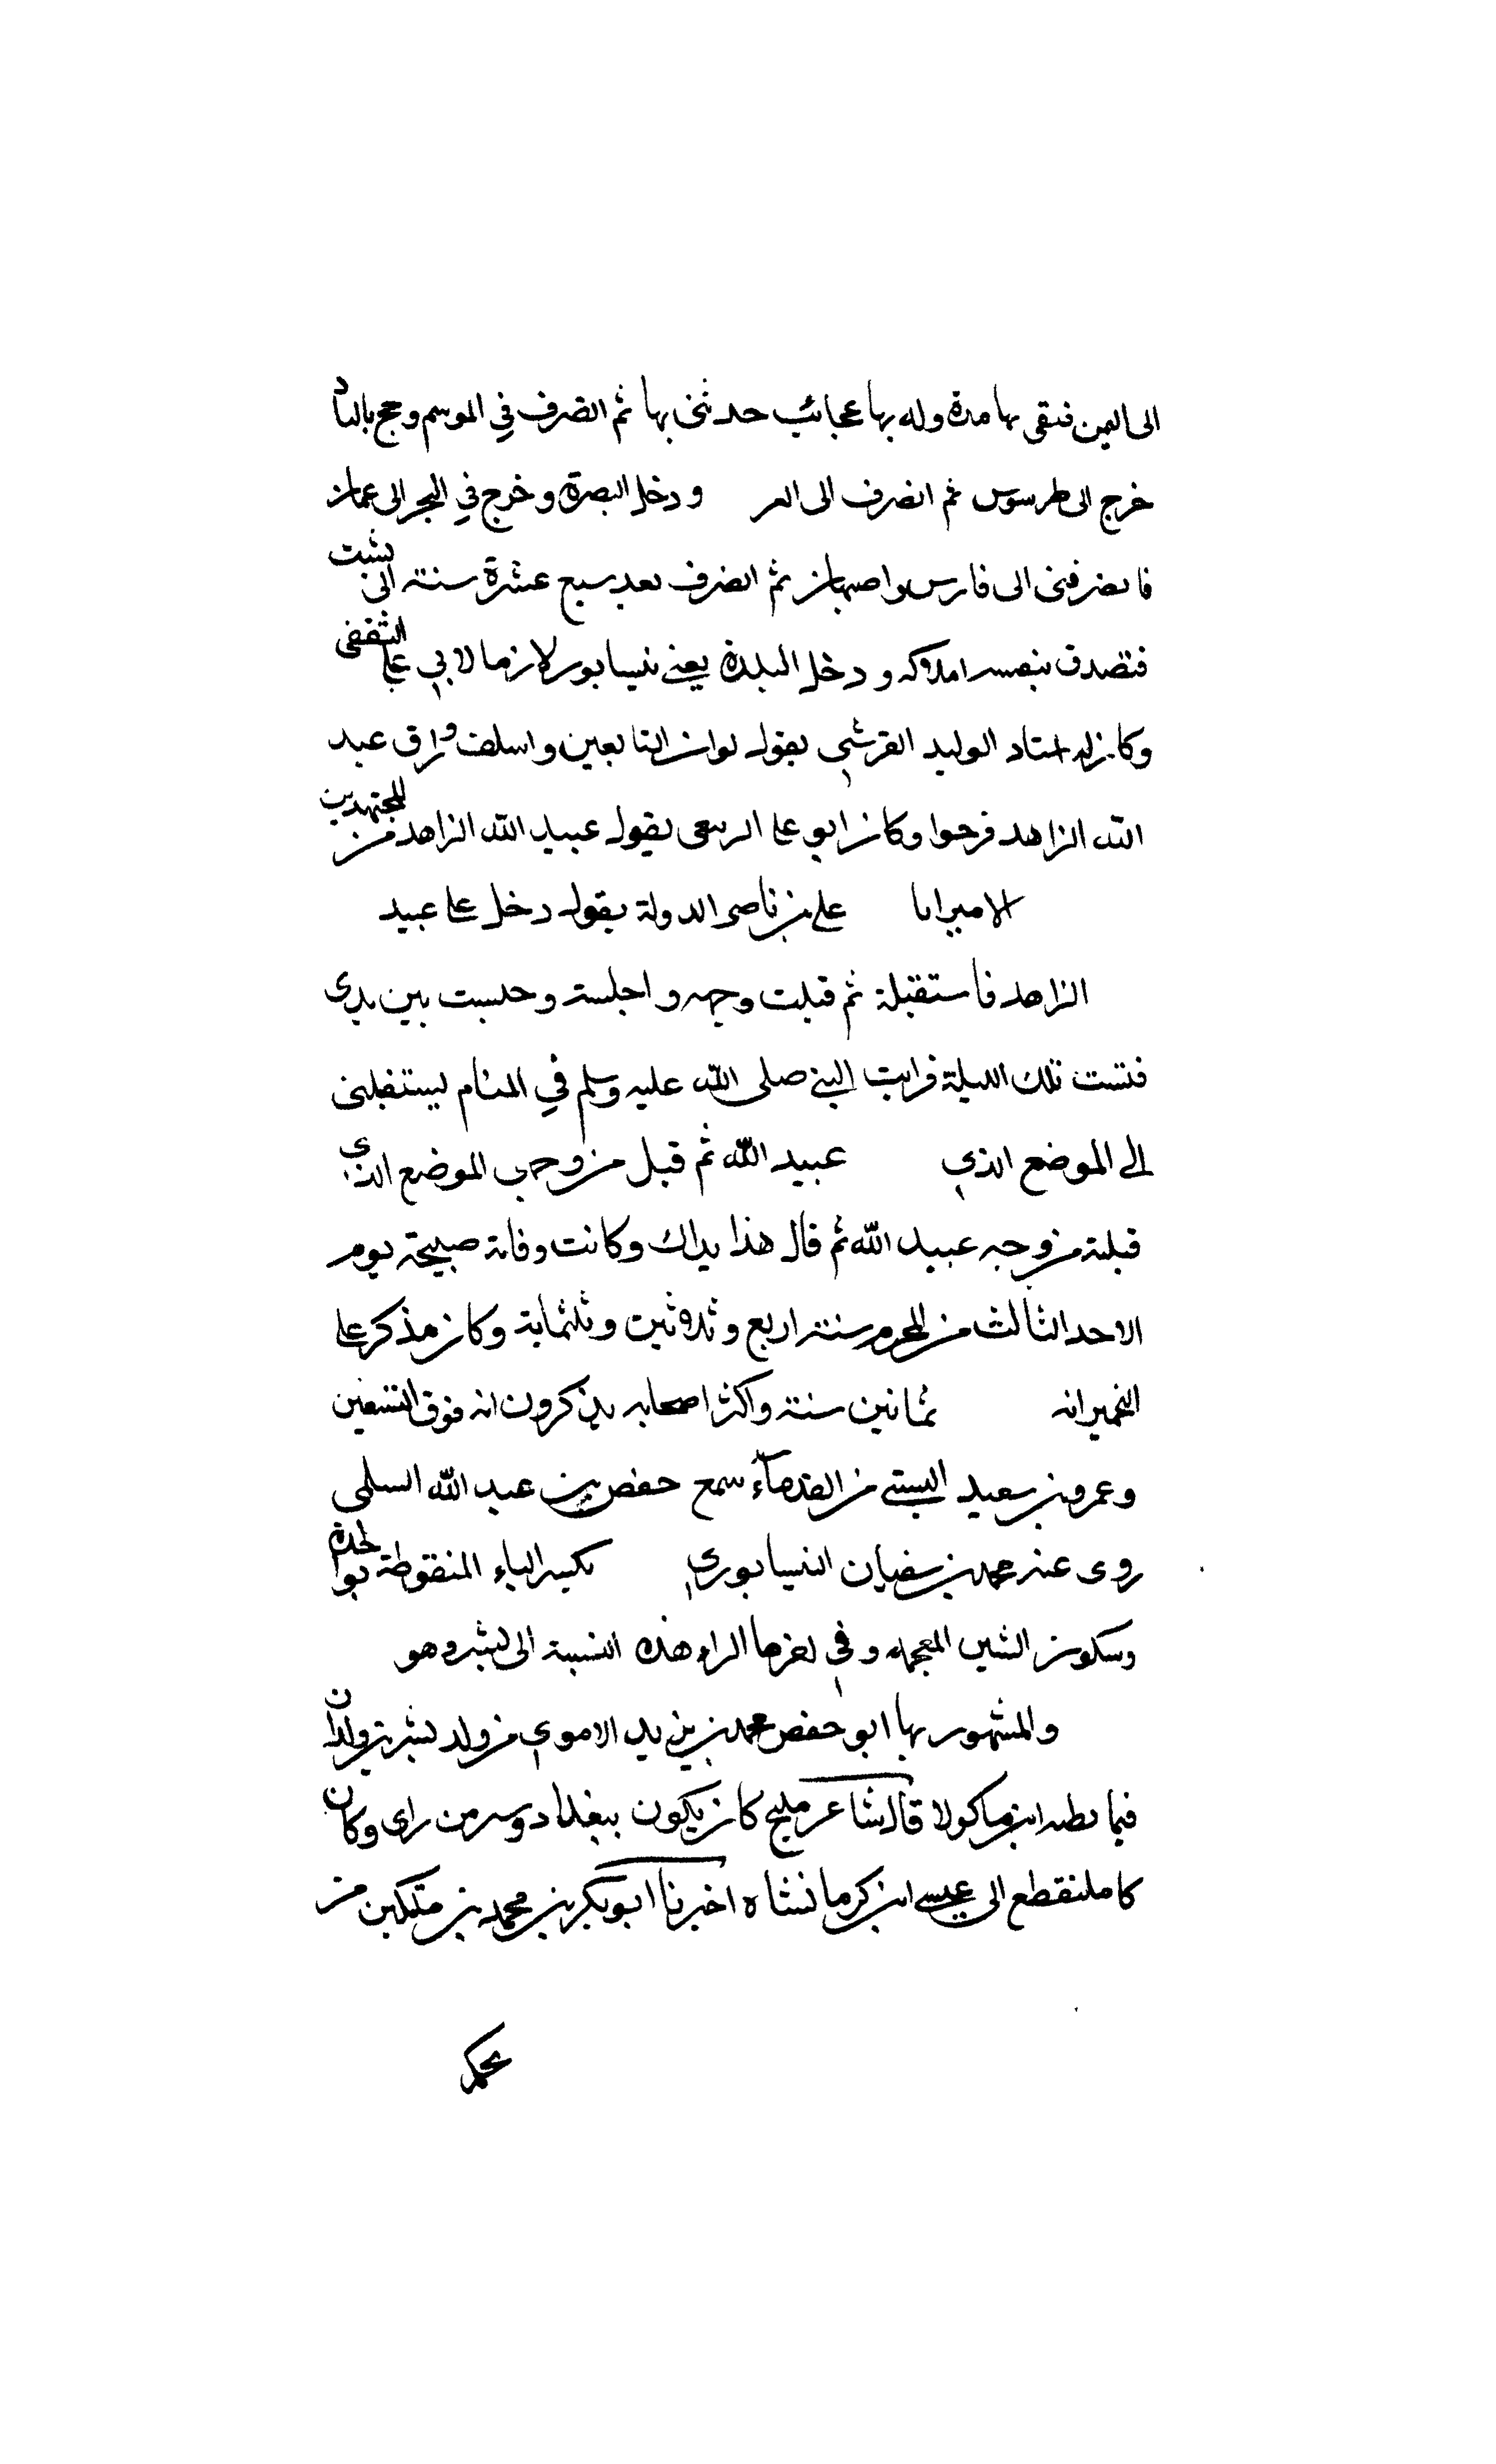 الى اليمن فبقى بها مدة وله بها عجائب حدثنى بها ثم انصرف في الموسم وحج بالناد
خرج الى طرسوس ثم انصرف الى العر ودخل البصرة وخرج في البحر الى عمان
الى فارس واصبهان ثم انصرف بعد سبع عشرة سنة الى بشت
فتصدق املاكه ودخل البلدة يعني نيسابور لازما لابي علي الثقفى
وكان الوليد القرشي يقول لوان التابعين واسلف عبيد
الله الزاهد فرحوا وكان ابو علي يقول عبيد الله الزاهد من المجتهدين
الامير ابا علي بن ناصر الدولة يقول دخل علي عبيد
الزاهد فاستقبلة ثم قبلت وجهه واجلسته وجلست بين يدى
تلك الليلة فرايت النبي صلى الله عليه وسلم في المنام
الى الموضع الذي عبيد الله ثم قبل من وجهي الموضع الذي
قبلته من وجه عبيد الله ثم قال هذا بذاك وكانت وفاته صبيحة يوم
الاحد الثالث من المحرم سنة اربع وثلاثين وثلثماية وكان يذكر علي
ثمانين سنة واكثر اصحابه يذكرون انه فوق التسعين
وعمرو بن سعيد البستي من القدماء سمع حفص بن عبد الله السلمى
روى عنه محمد بن سفيان النيسابوري بكسر الباء المنقوطة بواحدة
وسكون الشين المعجمة وفي اخرها الراء هذه النسبة الى بشر وهو
والمشهور بها ابو حفص محمد بن يزيد الاموي من ولد بشر بن مروان
فيما يظنه ابن ماكولا قال شاعر مليح كان يكون ببغداد وسر من راى وكان
كا منقطع الى عيسى ابن كرمانشاه اخبرنا ابو بكر بن محمد بن من